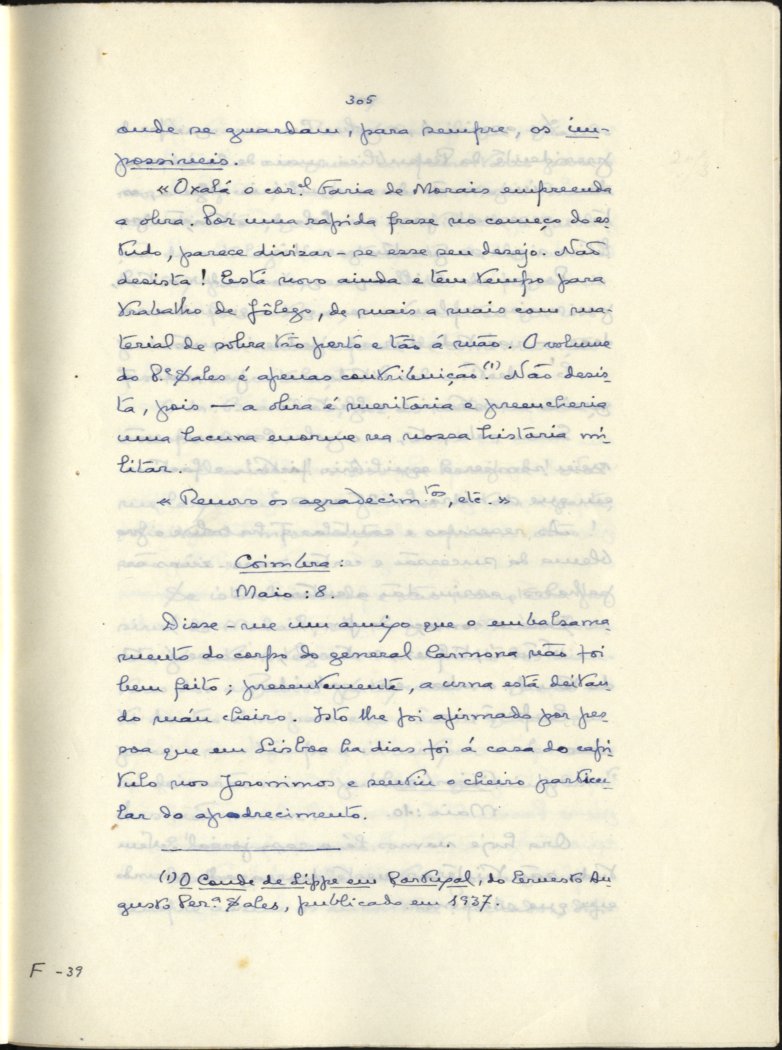 305
onde se guardam, para sempre, os im-
possiveis.
« Oxalá o cor.el Faria de Morais empreenda
a obra. Por uma rapida frase no começo do es-
tudo, parece divizar-se esse seu desejo. Não
desista! Está novo ainda e tem tempo para
trabalho de fôlego, de mais a mais com ma-
terial de sobra tão perto e tão á mão. O volume
do P.e Sales é apenas contribuição.(1) Não desis-
ta, pois — a obra é meritoria e preencheria
uma lacuna enorme na nossa historia mi-
litar.
« Renovo os agradecim.tos, etc. »
Coimbra:
Maio: 8.
Disse-me um amigo que o embalsama-
mento do corpo do general Carmona não foi
bem feito; presentemente, a urna está deitan-
do máu cheiro. Isto lhe foi afirmado por pes-
soa que em Lisboa ha dias foi á casa do capi-
tulo nos Jeronimos e sentiu o cheiro particu-
lar do apodrecimento.
(1) O Conde de Lippe em Portugal, do Ernesto Au-
gusto Per.a Sales, publicado em 1937.
F - 39